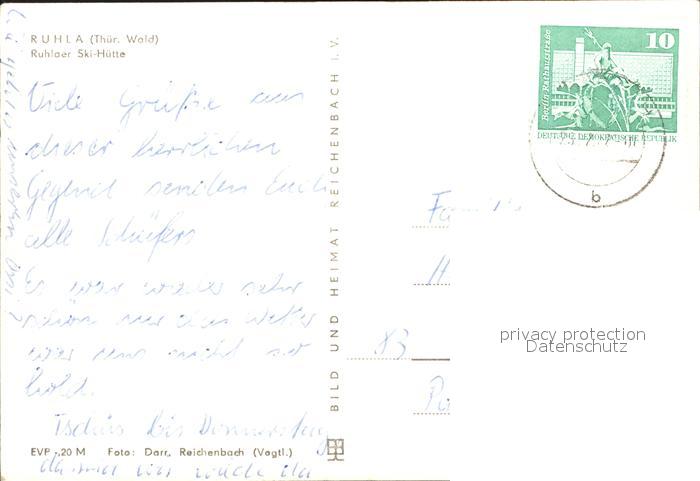 RUHLA (Thür. Wald)
Ruhlaer Ski-Hütte
Viele Grüße aus
dieser herrlichen
Gegend senden Euch
alle Schäfers
Es war wieder sehr
schön nur das Wetter
war uns nicht so
hold.
Tschüs bis Donnerstag
EVP -,20 M Foto: Darr, Reichenbach (Vogtl.)
BILD UND HEIMAT REICHENBACH I. V.
Berlin Rathausstraße
10
DEUTSCHE DEMOKRATISCHE REPUBLIK
b
privacy protection
Datenschutz